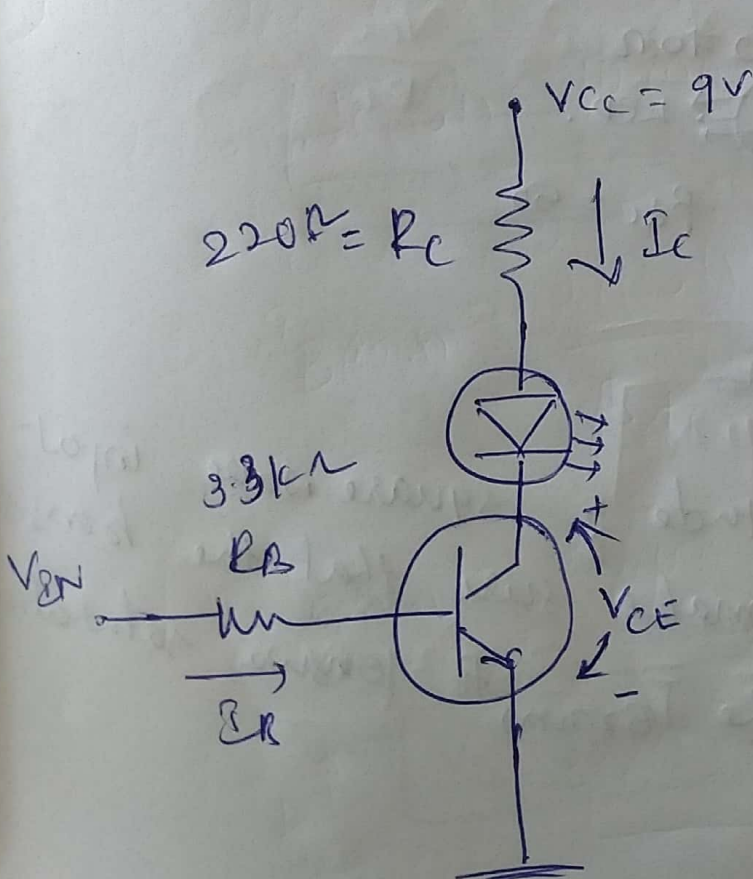 VCC = 9V
220Ω = RC
IC
3.3kΩ
RB
VIN
+
VCE
-
IB